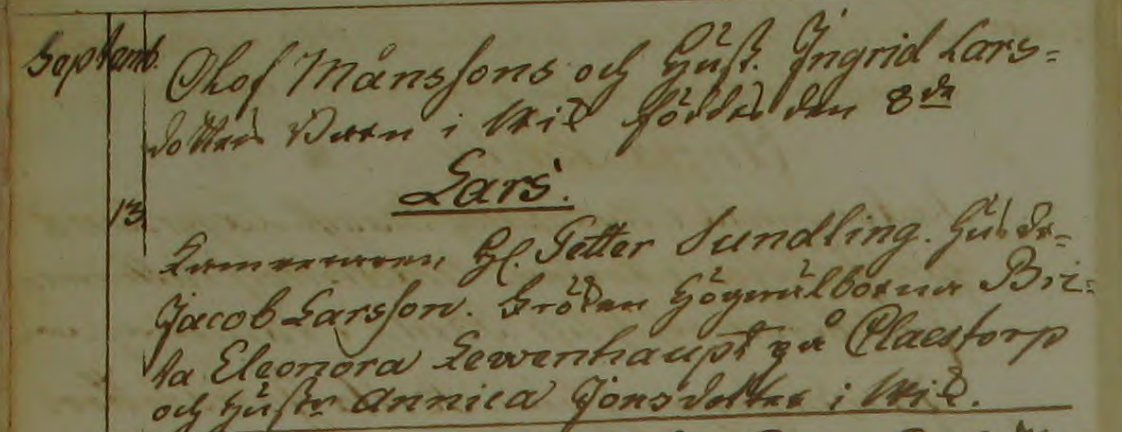 Septemb.
Olof Månssons och Hust. Ingrid Lars-
dotters Barn i Wid föddes den 8de
Lars.
13
Cammeraren Hl. Petter Sundling. Husb.
Jacob Larsson. Fröken Högwälborna Bri-
ta Eleonora Lewenhaupt på Claestorp
och Hustr Annica Jonsdotter i Wid.